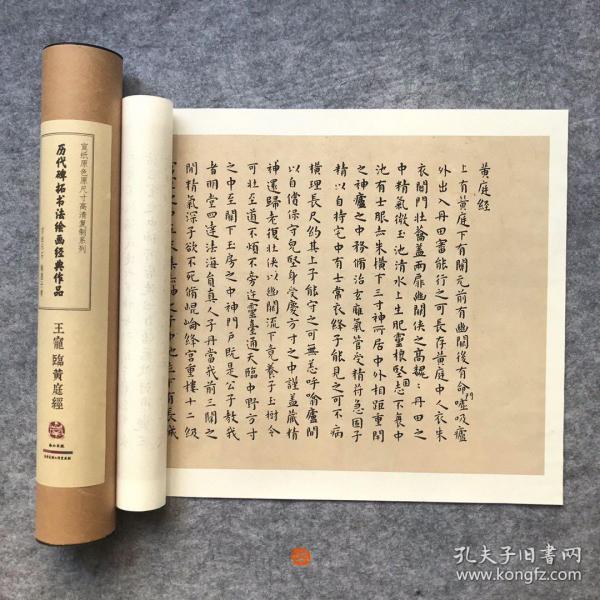 黄庭經
上有黄庭下有關元前有幽闕後有命門噓吸廬
外出入丹田審能行之可長存黄庭中人衣朱
衣關門壯蘥蓋兩扉幽闕俠之髙巍巍丹田之
中精氣微玉池清水上生肥靈根堅志不衰中
池有士服赤朱横下三寸神所居中外相距重閇
之神廬之中務脩治玄癕氣管受精符急固子
精以自持宅中有士常衣絳子能見之可不病
横理長尺約其上子能守之可無恙呼噏廬間
以自償保守皃堅身受慶方寸之中謹蓋藏精
神還歸老復壯俠以幽闕流下竟養子玉樹令
可壯至道不煩不旁迕靈臺通天臨中野方寸
之中至關下玉房之中神門戸既是公子教我
者明堂四達法海負真人子丹當我前三關之
閒精氣深子欲不死脩崐崘絳宮重樓十二級
宣纸原色原尺寸高清复制系列
历代碑拓书法绘画经典作品
王寵臨黄庭經
孔夫子旧书网
www.kongfz.com